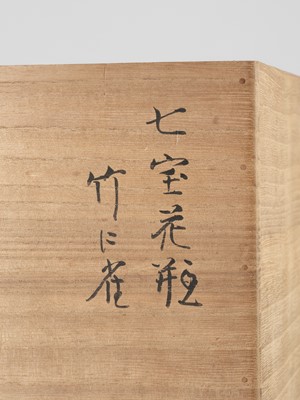 七宝花瓶
竹に雀